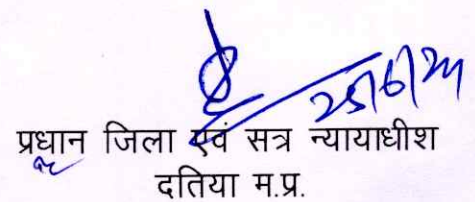 25/6/24
प्रधान जिला एवं सत्र न्यायाधीश
दतिया म.प्र.